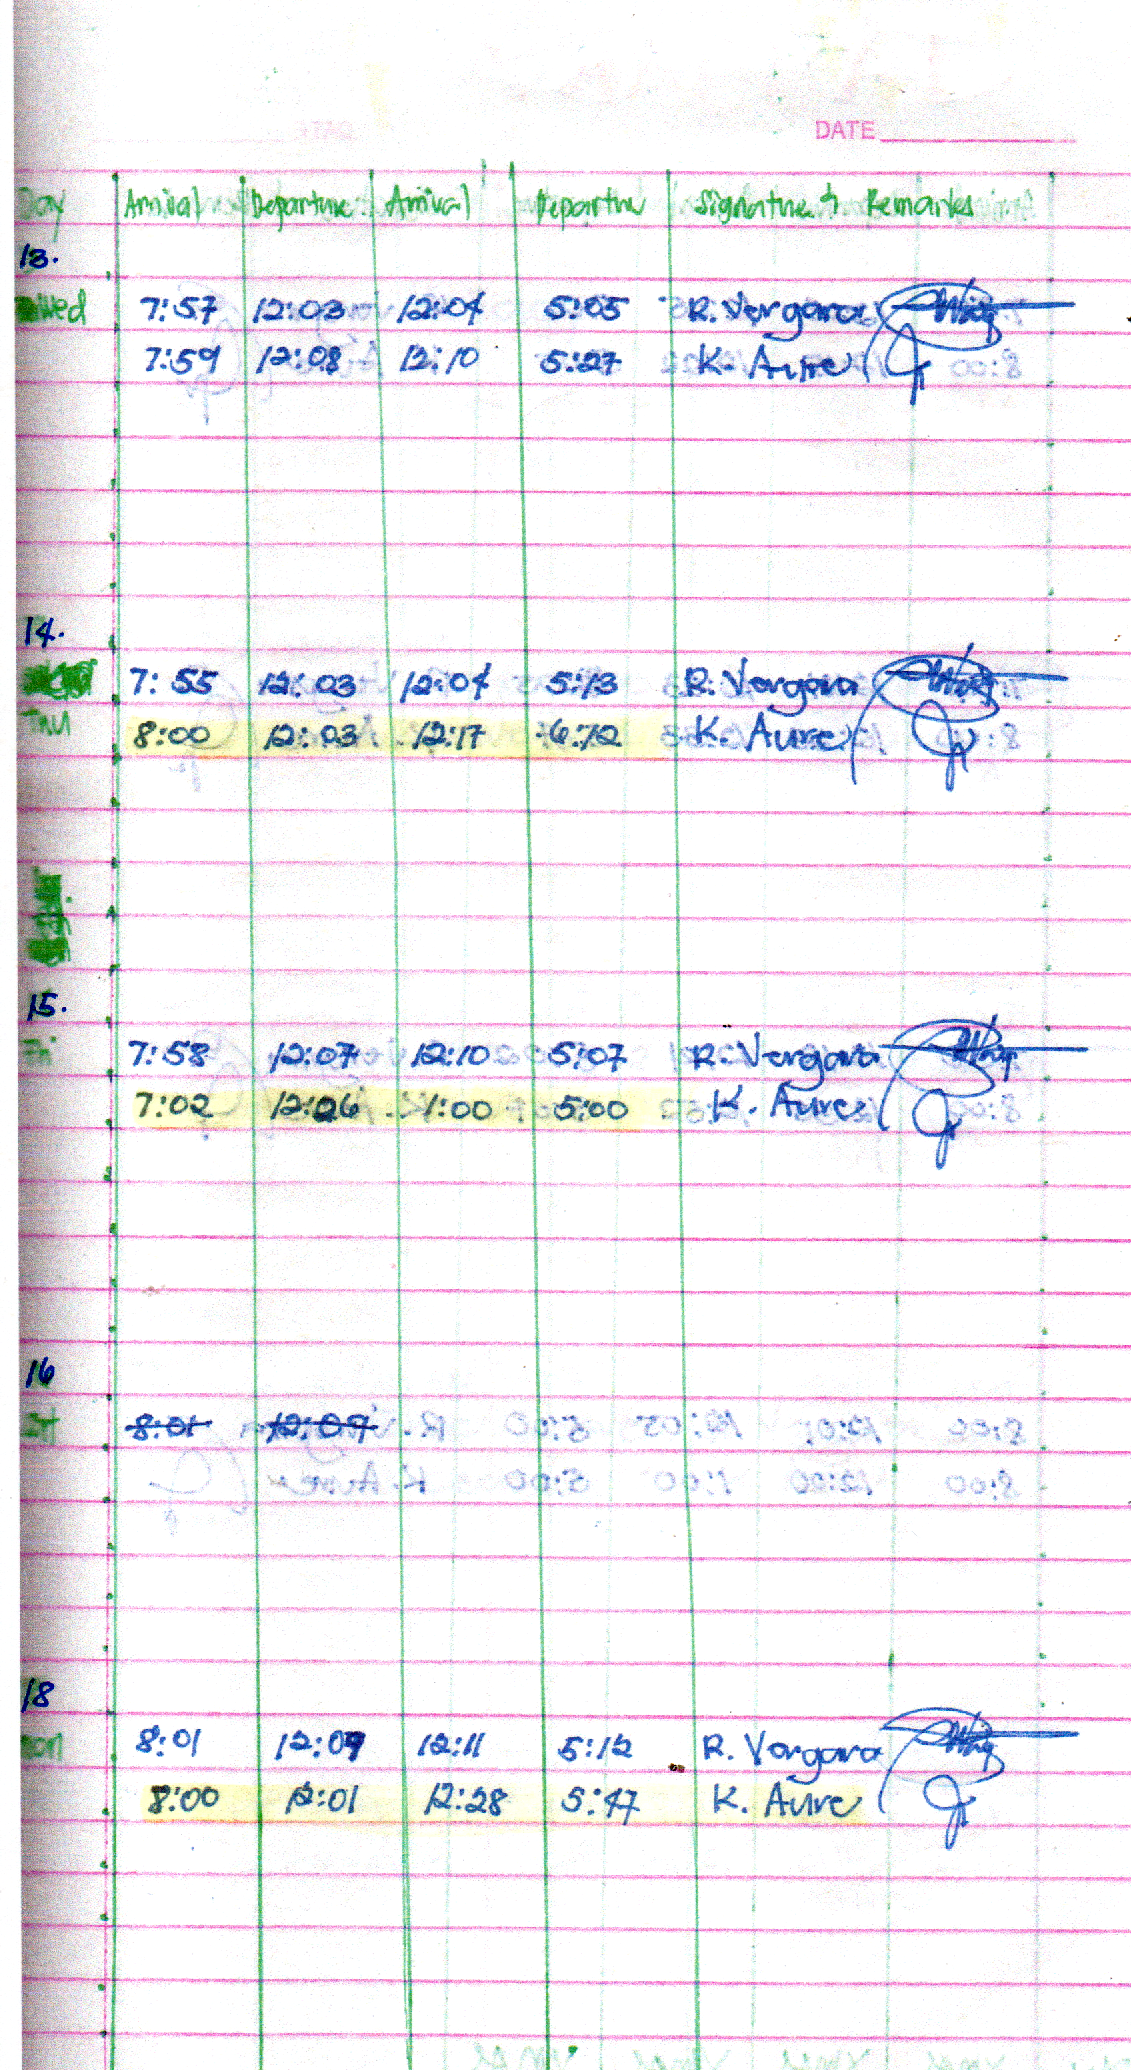 DATE
Day Arrival Departure Arrival Departure Signature & Remarks
13.
Wed 7:57 12:03 12:04 5:05 R. Vergara
7:59 12:08 12:10 5:27 K. Aure
14.
7:55 12:03 12:04 5:13 R. Vergara
Thu 8:00 12:03 12:17 6:12 K. Aure
15.
Fri 7:58 12:07 12:10 5:07 R. Vergara
7:02 12:26 1:00 5:00 K. Aure
16
8:01 12:09
18
Mon 8:01 12:09 12:11 5:12 R. Vergara
8:00 12:01 12:28 5:47 K. Aure